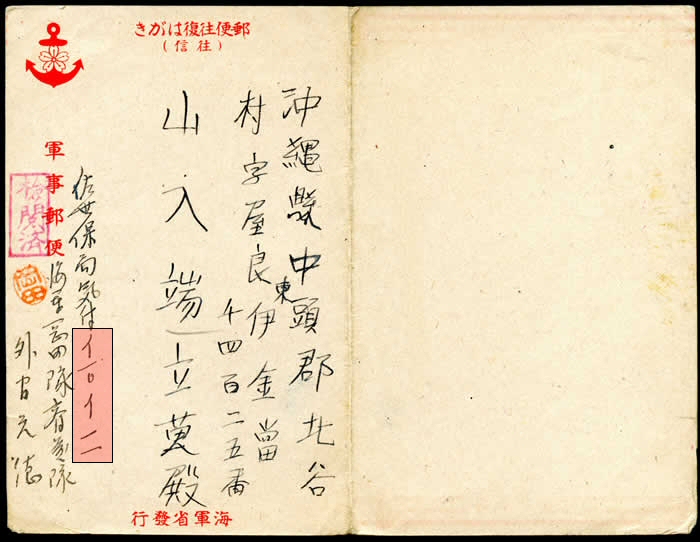 郵便往復はがき
(往信)
沖縄縣中頭郡北谷
村字屋良東伊金畄
千四百二五番
山入端立蔓殿
軍事郵便
検閲済
佐世保局気付イ一〇イ二
海軍 隊 隊
海軍省發行